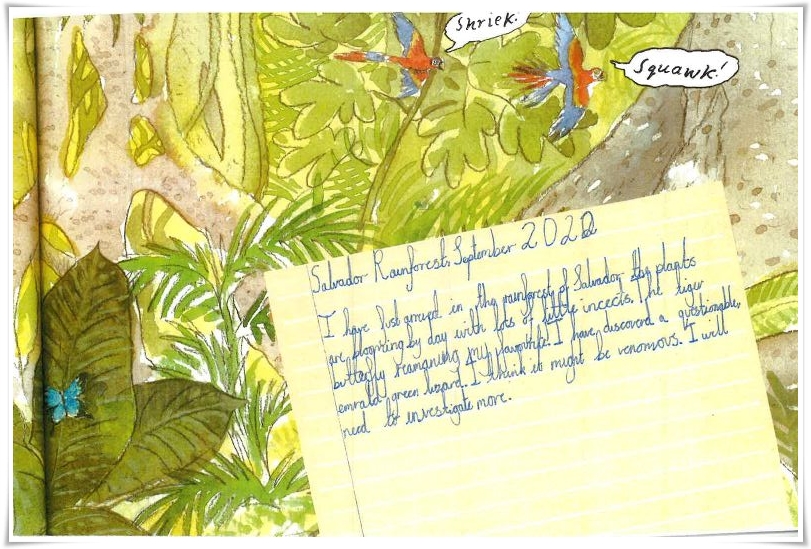 Shriek!
Squawk!
Salvador Rainforest, September 2020
I have just arrived in the rainforest of Salvador the plants
are blooming by day with lots of little incects. The tiger
butterfly remaning my favourite. I have discoverd a questionable,
emrald green lizard. I think it might be venomous. I will
need to investigate more.